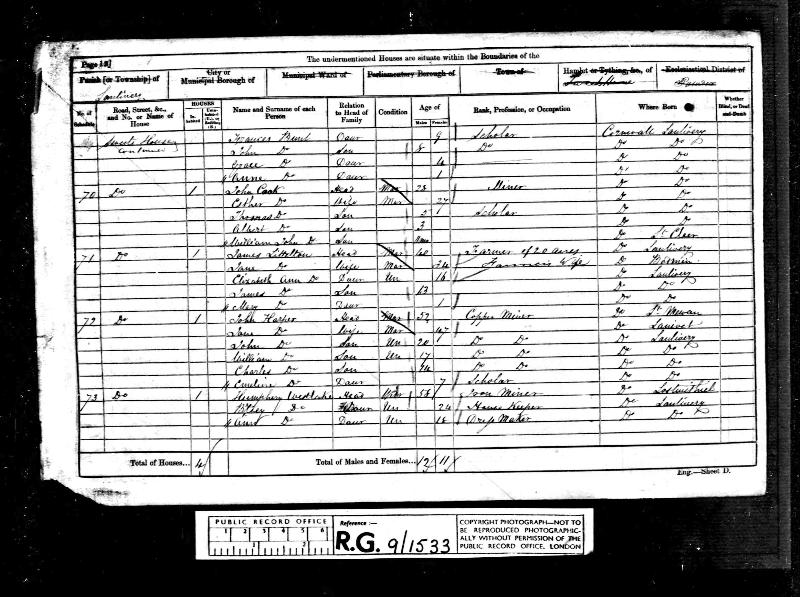 The undermentioned Houses are situate within the Boundaries of the
Parish [or Township] of
City or Municipal Borough of
Municipal Ward of
Parliamentary Borough of
Town of
Hamlet or Tything, &c., of
Ecclesiastical District of
No. of Schedule
Road, Street, &c., and No. or Name of House
HOUSES
Inhabited
Name and Surname of each Person
Relation to Head of Family
Condition
Age of
Males
Females
Rank, Profession, or Occupation
Where Born
Whether Blind, or Deaf-and-Dumb
continued
Frances Daur 9 Scholar Cornwall Lanlivery
John Do Son 8 Do Do Do
Grace Do Daur 4 Do Do
Anne Do Daur 1 Do Do
70 Do 1 John Cook Head Mar 28 Miner Do Do
Esther Do Wife Mar 27 Do Do
Thomas Do Son 5 Scholar Do Do
Albert Do Son 3 Do Do
William John Do Son Do St Cleer
71 Do 1 James Head Mar 40 Farmer of 20 acres Do Lanlivery
Jane Do Wife Mar 34 Farmer's Wife Do
Elizabeth Ann Do Daur Un 16 Do Lanlivery
James Do Son 13 Do Do
Mary Do Daur 1 Do Do
72 Do 1 John Harper Head Mar 52 Copper Miner Do St Mewan
Jane Do Wife Mar 47 Do Lanivet
John Do Son Un 20 Do Do Do Lanlivery
William Do Son Un 17 Do Do Do Do
Charles Do Son 14 Do Do Do Do
Emeline Do Daur 7 Scholar Do Do
73 Do 1 Humphry Westlake Head 58 Iron Miner Do Lostwithiel
Do Daur Un 24 House Keeper Do Lanlivery
Ann Do Daur Un 18 Dress Maker Do Do
Total of Houses... 4
Total of Males and Females... 12 11
Eng.—Sheet D.
PUBLIC RECORD OFFICE
1 2 3 4 5 6
1 2
Reference :—
R.G. 9/1533
COPYRIGHT PHOTOGRAPH—NOT TO
BE REPRODUCED PHOTOGRAPHIC-
ALLY WITHOUT PERMISSION OF THE
PUBLIC RECORD OFFICE, LONDON